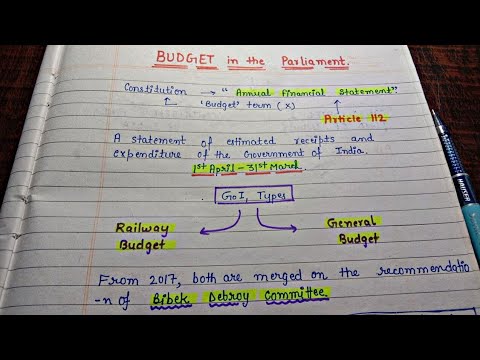 BUDGET in the Parliament.
Constitution → "Annual Financial Statement"
'Budget' term (X)
Article 112
A statement of estimated receipts and
expenditure of the Government of India.
1st April - 31st March.
GoI, Types
Railway Budget
General Budget
From 2017, both are merged on the recommendatio
-n of Bibek Debroy Committee.
HAUSER